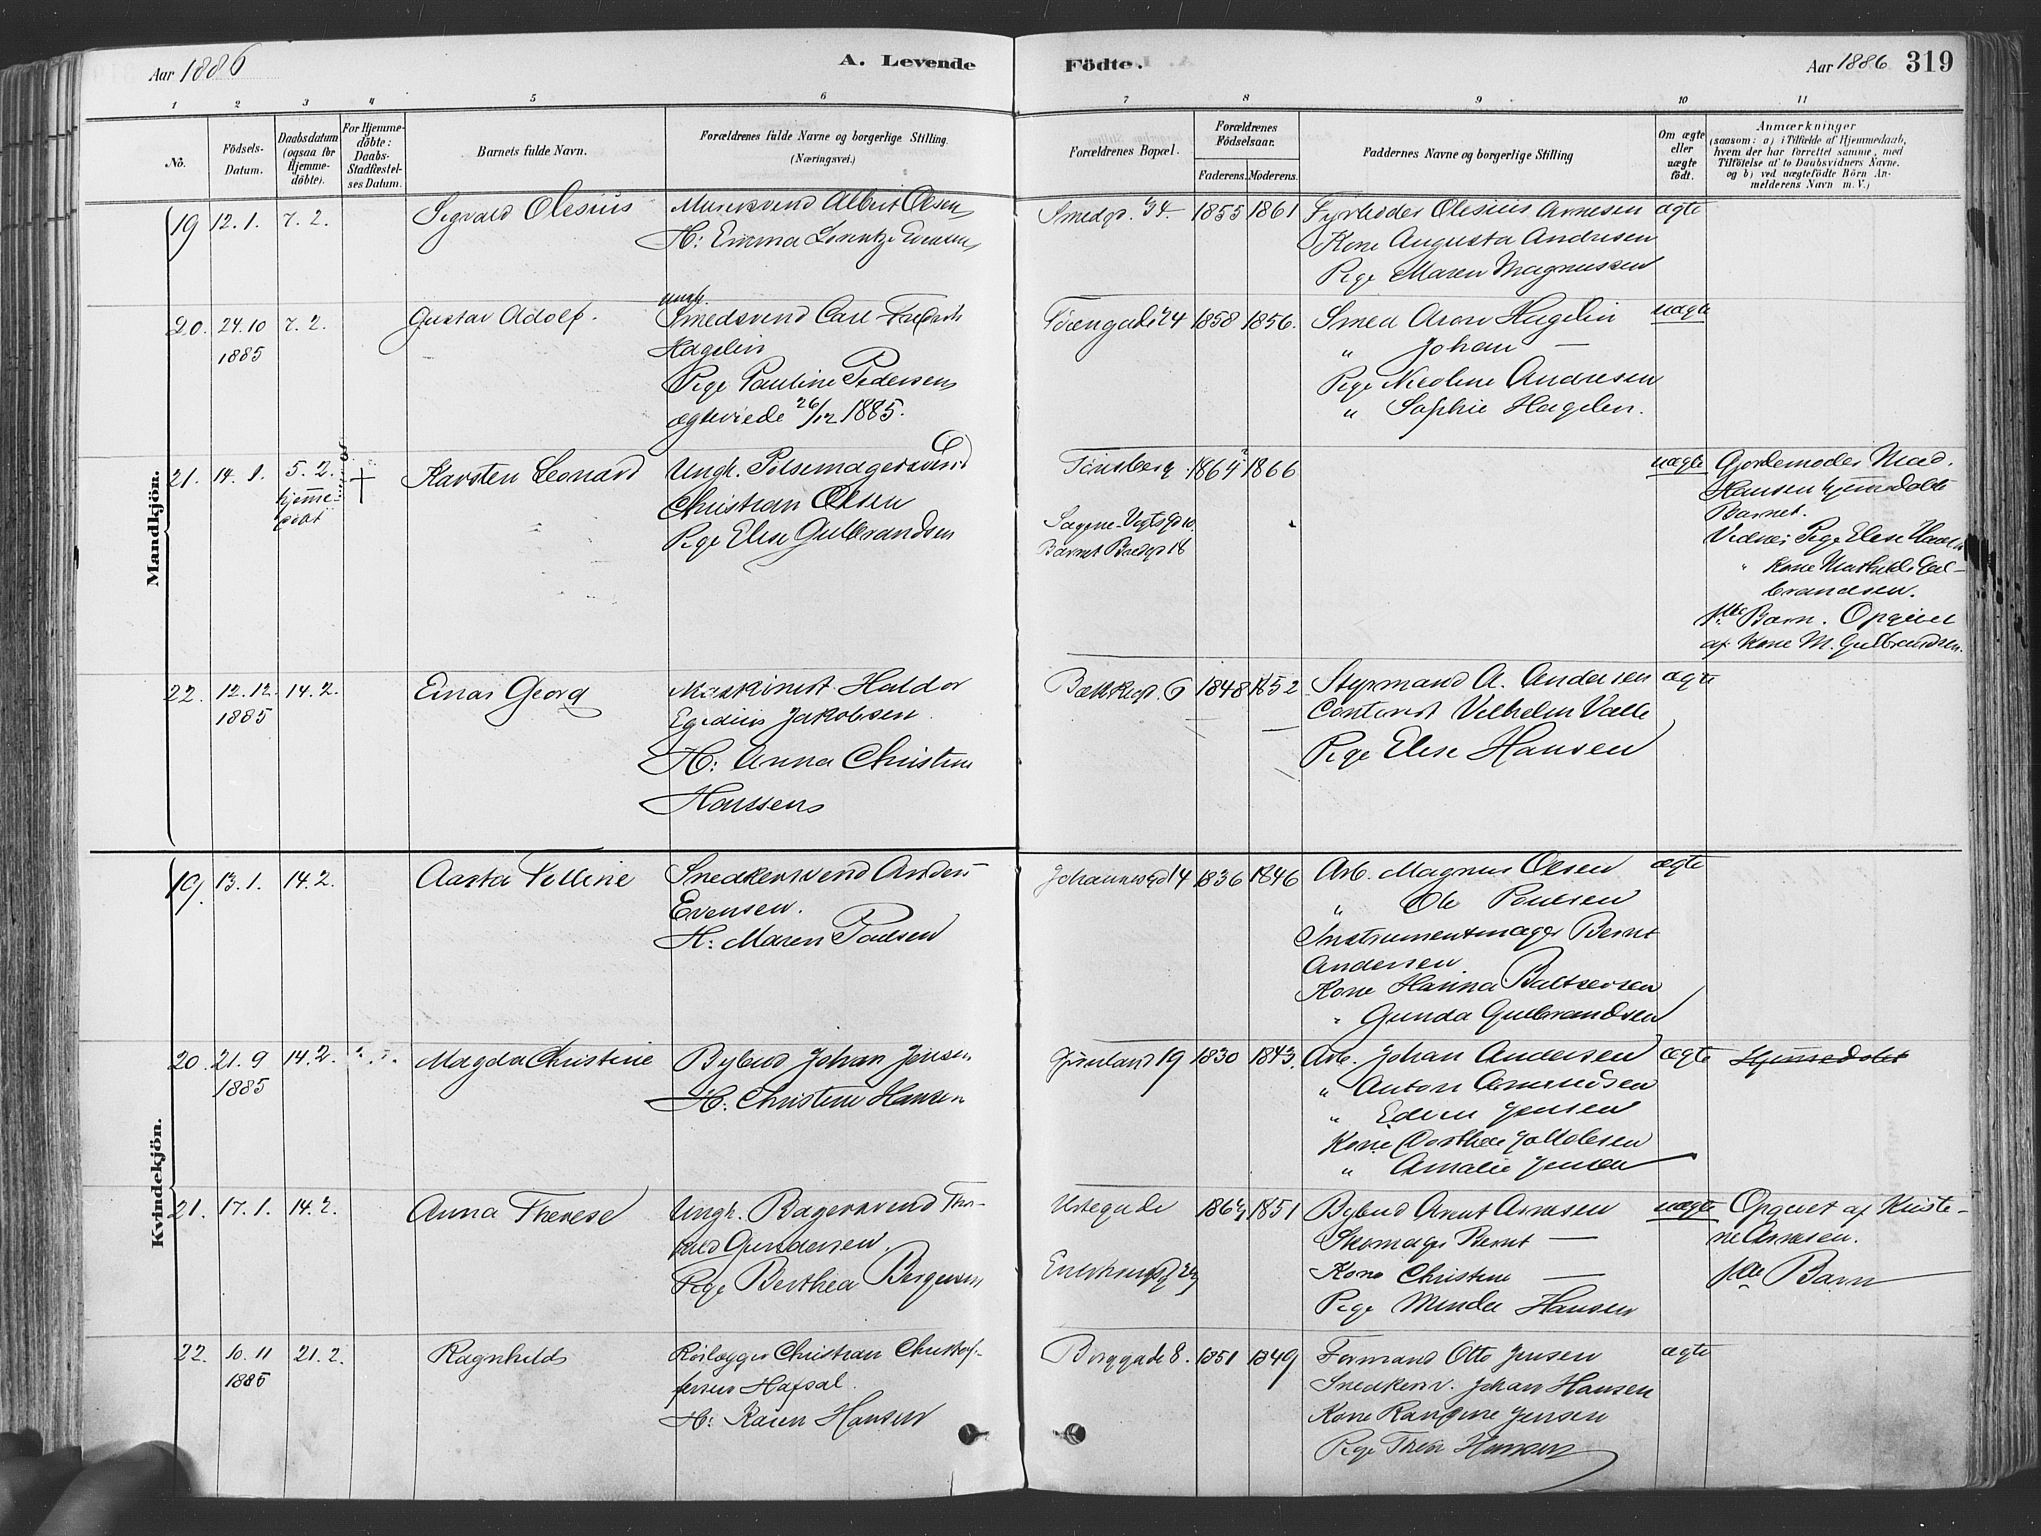 Aar 1886
A. Levende
Födte.
Aar 1886
319
1 2 3 4 5 6 7 8 9 10 11
No.
Födsels-
Datum.
Daabsdatum
(ogsaa for
Hjemme-
döbte).
For Hjemme-
döbte:
Daabs-
Stadfæstel-
ses Datum.
Barnets fulde Navn.
Forældrenes fulde Navne og borgerlige Stilling.
(Næringsvei.)
Forældrenes Bopæl.
Forældrenes
Födselsaar.
Faderens. Moderens.
Faddernes Navne og borgerlige Stilling
Om ægte
eller
uægte
födt.
Anmærkninger
(saasom: a) i Tilfælde af Hjemmedaab,
hvem der har forrettet samme, med
Tilföielse af to Daabsvidners Navne,
og b) ved uægtefödte Börn An-
melderens Navn m. V.)
Mandkjön.
19 12.1. 7.2. Sigvald Olesius
Murersvend Albert Olsen
H: Emma Lorentze Evensen
Smedg. 34. 1855 1861
Fyrbøder Olesius Arnesen
Kone Augusta Andresen
Pige Maren Magnussen
ægte
20. 24.10 7.2. Gustav Adolf.
1885
ungk.
Smedsvend Carl Fredrik
Hagelin
Pige Pauline Pedersen
ægteviede 26/12 1885.
24 1858 1856.
Smed Aron Hagelin
" Johan —
Pige Nicoline Andresen
" Sophie Hagelin.
uægte
21. 14.1. 5.2. Karsten Leonard
hjemme-
døbt
Ungk. Pølsemagersvend
Christian Olsen
Pige Elise Gulbrandsen
Tønsberg 1864 1866
Sagene Vogtsg 10
Barnet Bredg 18
uægte
Gjordemoder Mad.
Hansen hjemmedøbte
Barnet.
Vidner Pige Elise
" Kone Mathilde Gul-
brandsen.
1ste Barn. Opgivet
af Kone M. Gulbrandsen.
22. 12.12. 14.2. Einar Georg
1885
Maskinist Haldor
Egidius Jakobsen.
H: Anna Christine
Hanssen
6 1848 1852
Styrmand A. Andersen
Contorist Vilhelm Valle
Pige Elise Hansen
ægte
Kvindekjön.
19. 13.1. 14.2. Aasta
Snedkersvend Anders
Evensen.
H: Maren Paulsen
Johannesgd 14 1836 1846
Arb. Magnus Olsen
" Ole Poulsen
Instrumentmager Bernt
Andersen
Kone Hanna Baltzersen
" Gunda Gulbrandsen
ægte
20. 21.9 14.2. Magda Christine
1885
Bybud Johan Jensen
H: Christine Hansen
Grønland 19 1830 1843.
Arb. Johan Andersen
" Anton Amundsen
" Edvin Jensen
Kone Dorthea Jakobsen
" Amalie Jensen
ægte
Hjemmedøbt
21. 17.1. 14.2. Anna Therese
Ungk. Bagersvend Tho-
rvald Gundersen.
Pige Berthea Bergersen
Urtegade 1864 1851
Bybud Arnt Arnesen
Skomager Bernt —
Kone Christine —
Pige Minda Hansen
uægte
Opgivet af Kristi-
ne Arnesen.
1ste Barn
22. 10.11 21.2. Ragnhild
1885
Rørlægger Christian Christof-
fersen Hafsal.
H: Karen Hansen
Borggade 8. 1851 1849
Formand Otto Jensen
Snedkersv. Johan Hansen
Kone Jensen
Pige Thea Hansen
ægte